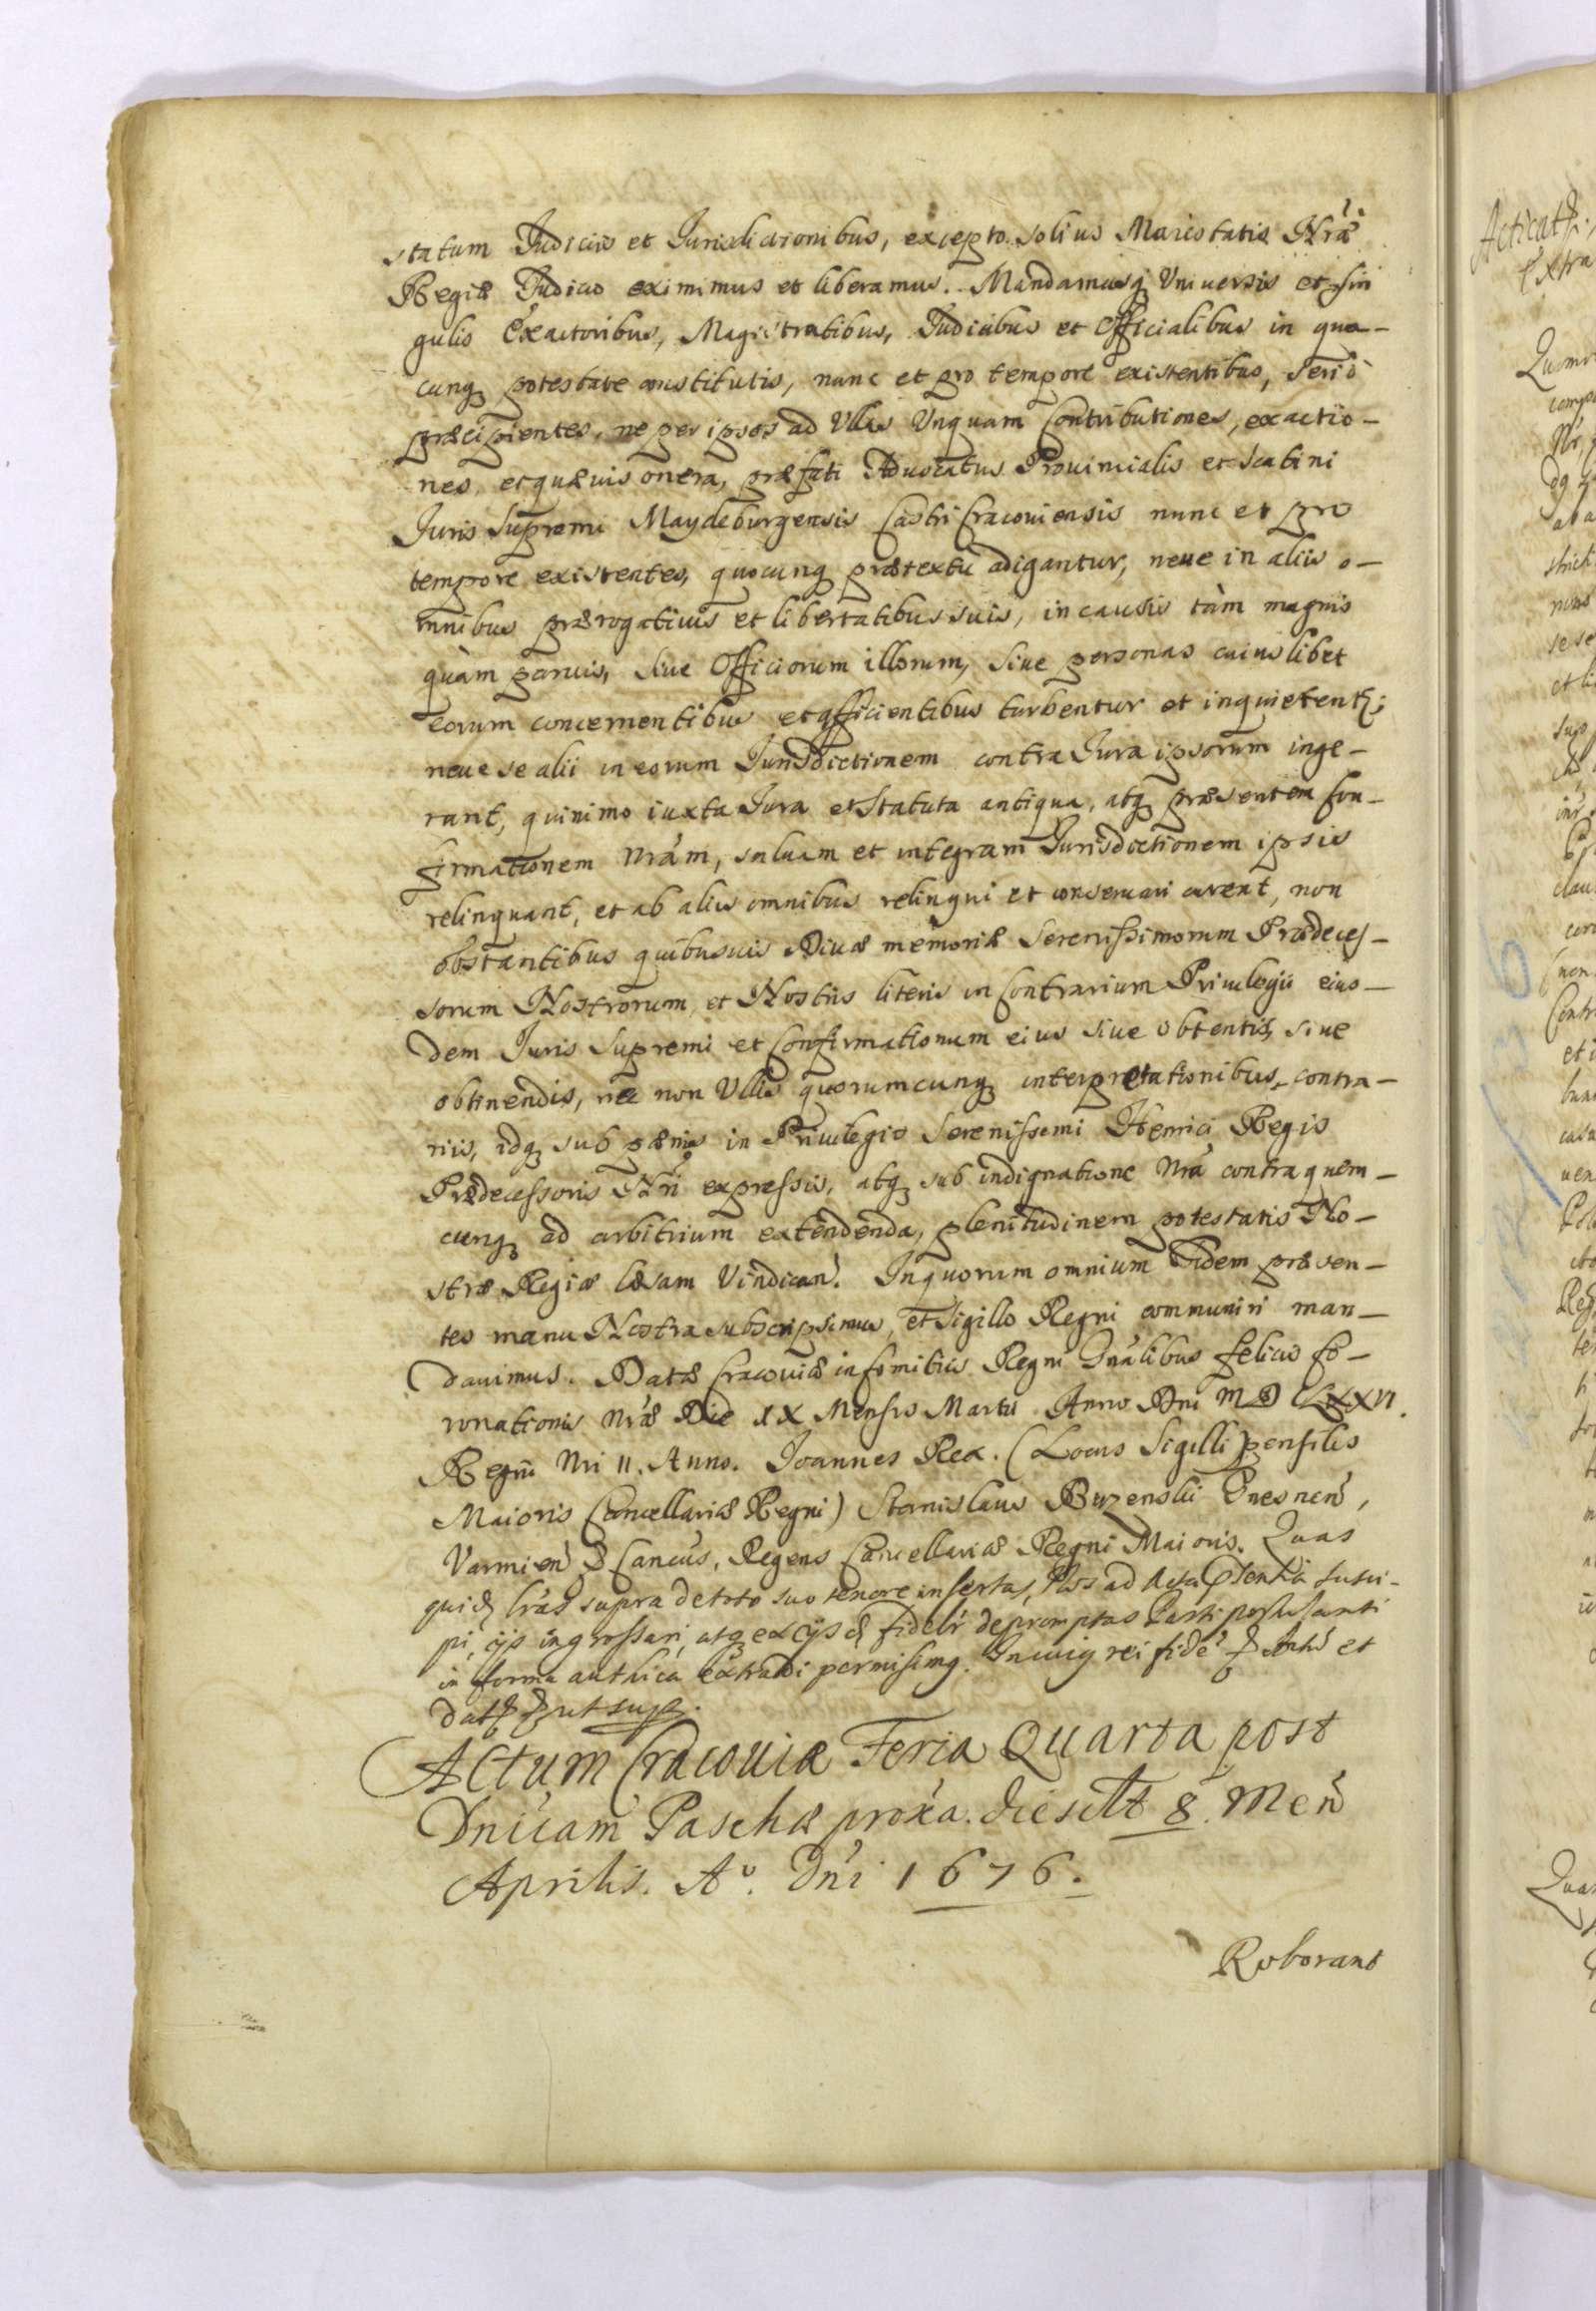 statum Judiciis et Jurisdictionibus, excepto solius Maiestatis Nræ
Regiæ Judicio eximimus et liberamus. Mandamusq Universis et sin
gulis Exactoribus, Magistratibus, Judicibus et Officialibus in qua-
cunq potestate constitutis, nunc et pro tempore existentibus, seriò
præcipientes, ne per ipsos ad Ullas Unquam Contributiones, exactio-
nes, et quævis onera, præfati Advocatus Provincialis et Scabini
Juris Supremi Maydeburgensis Castri Cracoviensis nunc et pro
tempore existentes, quocunq prætextu adigantur, neue in aliis o-
mnibus prærogativis et libertatibus suis, in causis tàm magnis
quàm paruis, siue Officiorum illorum, siue personas cuiuslibet
eorum concernentibus et afficientibus turbentur et inquietent;
neue se alii in eorum Jurisdictionem contra Jura ipsorum inge-
rant, quinimo iuxta Jura et Statuta antiqua, atq præsentem Con-
firmationem nrám, saluam et integram Jurisdictionem ipsis
relinquant, et ab aliis omnibus relinqui et conseruari curent, non
obstantibus quibusuis Diuæ memoriæ Serenissimorum Prædeces-
sorum Nostrorum, et Nostris literis in Contrarium Priuilegii eius-
dem Juris Supremi et Confirmationum eius siue obtentis, siue
obtinendis, nec non Ullis quorumcunq interpretationibus contra-
riis, idq sub pænis in Priuilegio Serenissimi Henrici Regis
Prædecessoris Nri expressis, atq sub indignatione nrá contra quem-
cunq ad arbitrium extendenda, plenitudinem potestatis No-
stræ Regiæ læsam Vindican. In quorum omnium fidem præsen-
tes manu Nostra subscripsimus, et Sigillo Regni communiri man-
dauimus. Datæ Cracoviæ in Comitiis Regni Gnálibus felicis Co-
ronationis nræ Die IX Mensis Martii Anno Dni MDCLXXVI.
Regni Nri II. Anno. Joannes Rex. (Locus Sigilli pensilis
Maioris Cancellariæ Regni) Stanislaus Buzenski Gnesnen,
Varmien D Cancus, Regens Cancellariæ Regni Maioris. Quas
quid lrás supra de toto suo tenore insertas, Nos ad Acta psentia susci-
pi, iisq ingrossari, atq ex iis fidelr depromptas Parti postulanti
in forma authica extradi permisimq. In cuiq rei fidé et
dat ut supra.
Actum Cracoviæ Feria Quarta post
Dnicam Paschæ proxa. die sclt 8. Men
Aprilis. Ao. Dni 1676.
Roborant